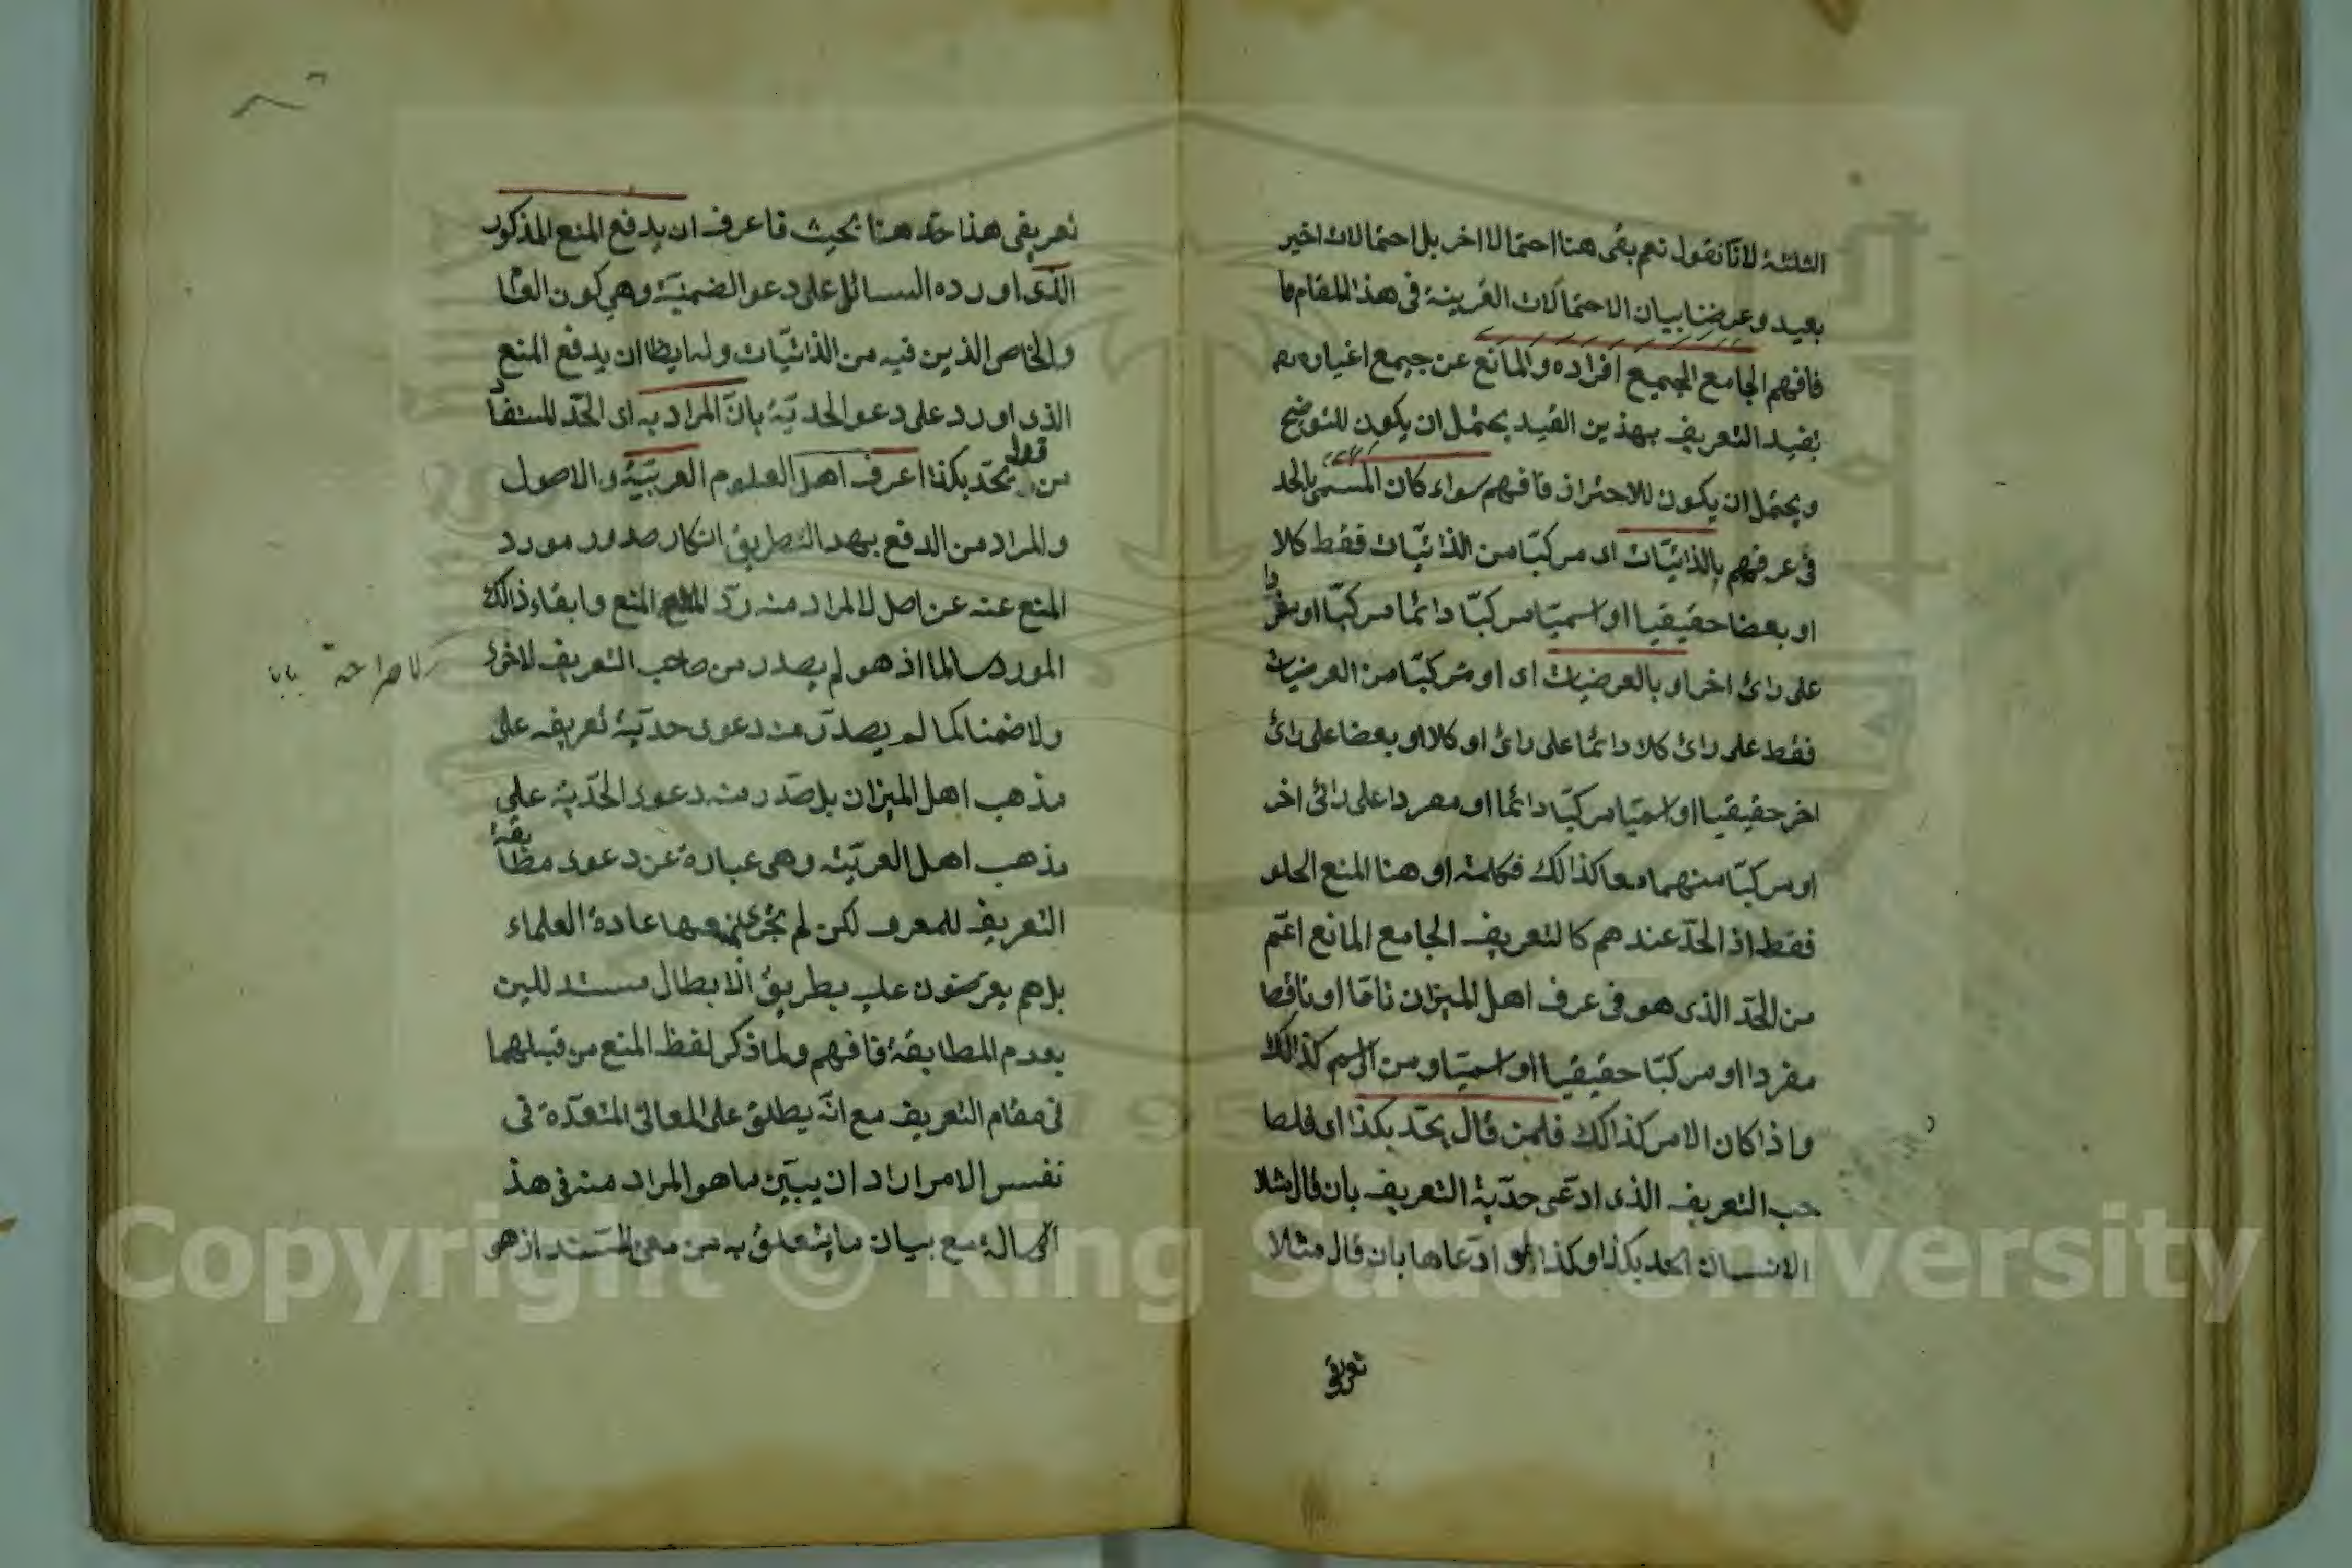 الثلثة لانا نقول نعم بقى هنا احتمالا اخر بل احتمالات اخير
بعيد وعرضنا بيان الاحتمالات القرينة فى هذا المقام
فافهم الجامع لجميع افراده والمانع عن جميع اغياره
تقييد التعريف بهذين القيد يحتمل ان يكون للتوضيح
ويحتمل ان يكون للاحتراز فافهم سواء كان المسمى بالحد
فى عرفهم بالذاتيات اى مركبا من الذاتيات فقط كلا
او بعضا حقيقيا او اسميا مركبا دائما مركبا او مفردا
على رائ اخر او بالعرضيات اى او مركبا من العرضيات
فقط على رائ كلا دائما على رائ او كلا او بعضا على رائ
اخر حقيقيا او اسميا مركبا دائما او مفردا على رائ اخر
او مركبا منهما معا كذالك فكلمة او هنا المنع الخلو
فقط اذ الحد عندهم كالتعريف الجامع المانع اعم
من الحد الذى هو فى عرف اهل الميزان تاما او ناقصا
مفردا او مركبا حقيقيا او اسميا ومن الرسم كذالك
واذا كان الامر كذالك فلمن قال يحد بكذا اى فلصا
حب التعريف الذى ادعى حدية التعريف بان قال مثلا
الانسان الحد بكذا وكذا او ادعاها بان قال مثلا
تعريفى
تعريفى هذا حد هنا بحيث فاعرف ان يدفع المنع المذكور
الذى اورده السائل على دعو الضمنية وهى كون العا
والخاص الذين فيه من الذاتيات وله ايظا ان يدفع المنع
الذى اورد على دعو الحدية بان المراد به اى الحد المستفاد
من قول يحد بكذا عرف اهل العلوم العربية والاصول
والمراد من الدفع بهد الطريق انكار صدور مورد
المنع عنه عن اصل لا المراد منه رد المنع وابقاء ذالك
المورد سالما اذ هو لم يصدر من صاحب التعريف لا
لا صراحة
ولا ضمنا كما لم يصدر منه دعوى حدية تعريفه على
مذهب اهل الميزان بل صدر منه دعوى الحدية على
مذهب اهل العربية وهى عبارة عن دعوى مطابقة
التعريف للمعرف لكن لم يجر منعها عادة العلماء
بل هم يعترضون عليه بطريق الابطال مستدلين
بعدم المطابقة فافهم ولما ذكر لفظ المنع من قبلهما
فى مقام التعريف مع انه يطلق على المعانى المتعدة فى
نفس الامر اراد ان يبين ما هو المراد منه فى هذ
الرسالة مع بيان ما يتعلق به من معنى المستند اذ هو
Copyright © King Saud University